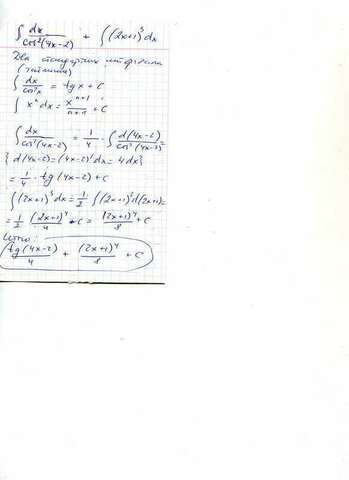 ∫ dx/cos²(4x-2) + ∫(2x+1)³dx
Два стандартных интеграла
∫ dx/cos²x = tg x + C
∫ xⁿ dx = xⁿ⁺¹/n+1 + C
∫ dx/cos²(4x-2) = 1/4 · ∫ d(4x-2)/cos²(4x-2) =
{ d(4x-2) = (4x-2)'dx = 4dx }
= 1/4 · tg(4x-2) + C
∫(2x+1)³dx = 1/2 ∫(2x+1)³d(2x+1) =
= 1/2 · (2x+1)⁴/4 + C = (2x+1)⁴/8 + C
Итого:
tg(4x-2)/4 + (2x+1)⁴/8 + C